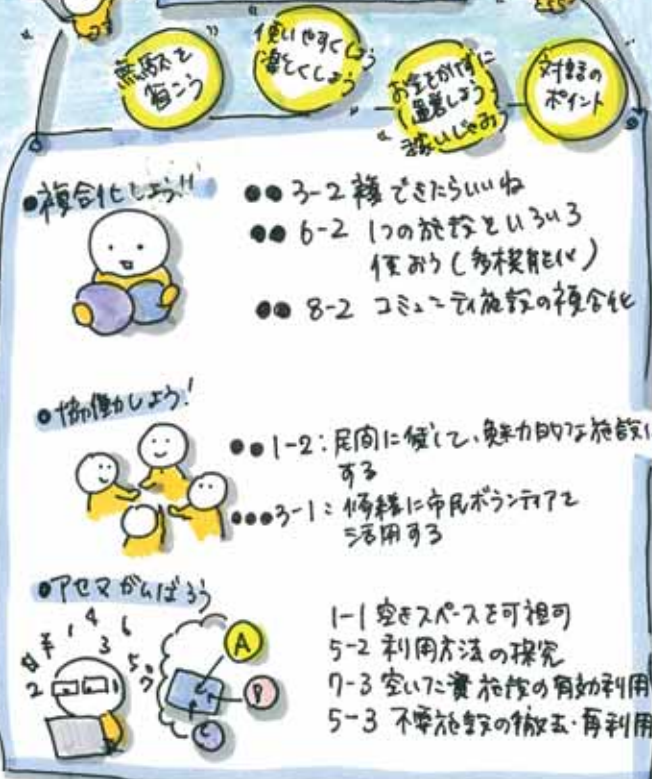 無駄を
省こう
使いやすくしよう
楽しくしよう
お金をかけずに
運営しよう
稼いじゃおう
対話の
ポイント
●複合化しよう!!
●● 3-2 複 できたらいいね
●● 6-2 1つの施設といろいろ
使おう(多機能化)
●● 8-2 コミュニティ施設の複合化
●協働しよう!
●●1-2:民間に 魅力的な施設に
する
●●●3-1:修繕に市民ボランティアを
活用する
●アセマがんばろう
¥
1
4
6
3
5
2
7
A
P
C
1-1 空きスペースを可視可
5-2 利用方法の探究
7-3 空いた 施設の有効利用
5-3 不要施設の撤去・再利用